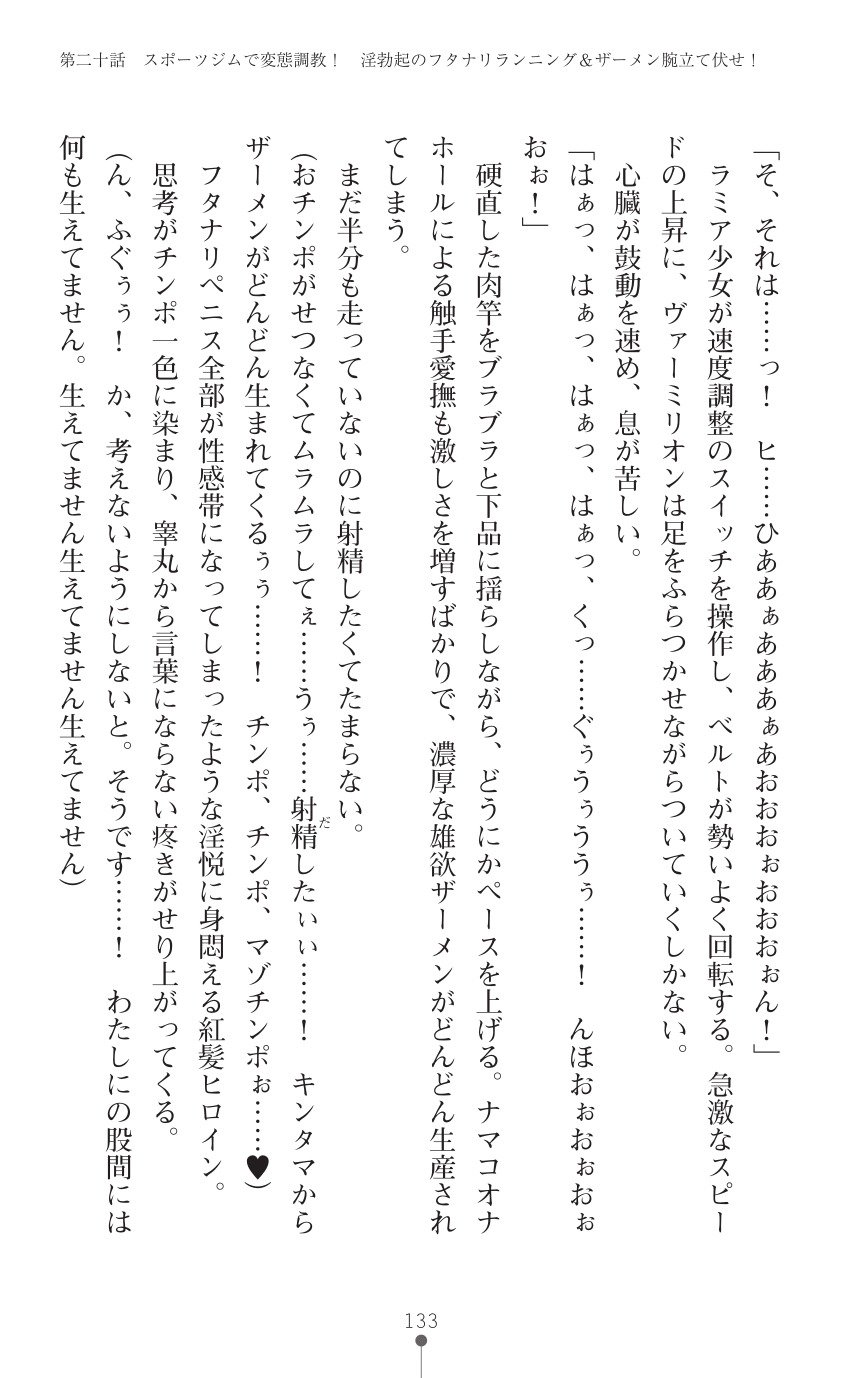 第二十話　スポーツジムで変態調教！　淫勃起のフタナリランニング＆ザーメン腕立て伏せ！
「そ、それは……っ！　ヒ……ひああぁあああぁあおおおぉおおおぉん！」
　ラミア少女が速度調整のスイッチを操作し、ベルトが勢いよく回転する。急激なスピー
ドの上昇に、ヴァーミリオンは足をふらつかせながらついていくしかない。
　心臓が鼓動を速め、息が苦しい。
「はぁっ、はぁっ、はぁっ、はぁっ、くっ……ぐぅうぅううぅ……！　んほおぉおぉおぉ
おぉ！」
　硬直した肉竿をブラブラと下品に揺らしながら、どうにかペースを上げる。ナマコオナ
ホールによる触手愛撫も激しさを増すばかりで、濃厚な雄欲ザーメンがどんどん生産され
てしまう。
　まだ半分も走っていないのに射精したくてたまらない。
（おチンポがせつなくてムラムラしてぇ……うぅ……射精だしたぃぃ……！　キンタマから
ザーメンがどんどん生まれてくるぅぅ……！　チンポ、チンポ、マゾチンポぉ……♥）
　フタナリペニス全部が性感帯になってしまったような淫悦に身悶える紅髪ヒロイン。
　思考がチンポ一色に染まり、睾丸から言葉にならない疼きがせり上がってくる。
（ん、ふぐぅぅ！　か、考えないようにしないと。そうです……！　わたしにの股間には
何も生えてません。生えてません生えてません生えてません）
133